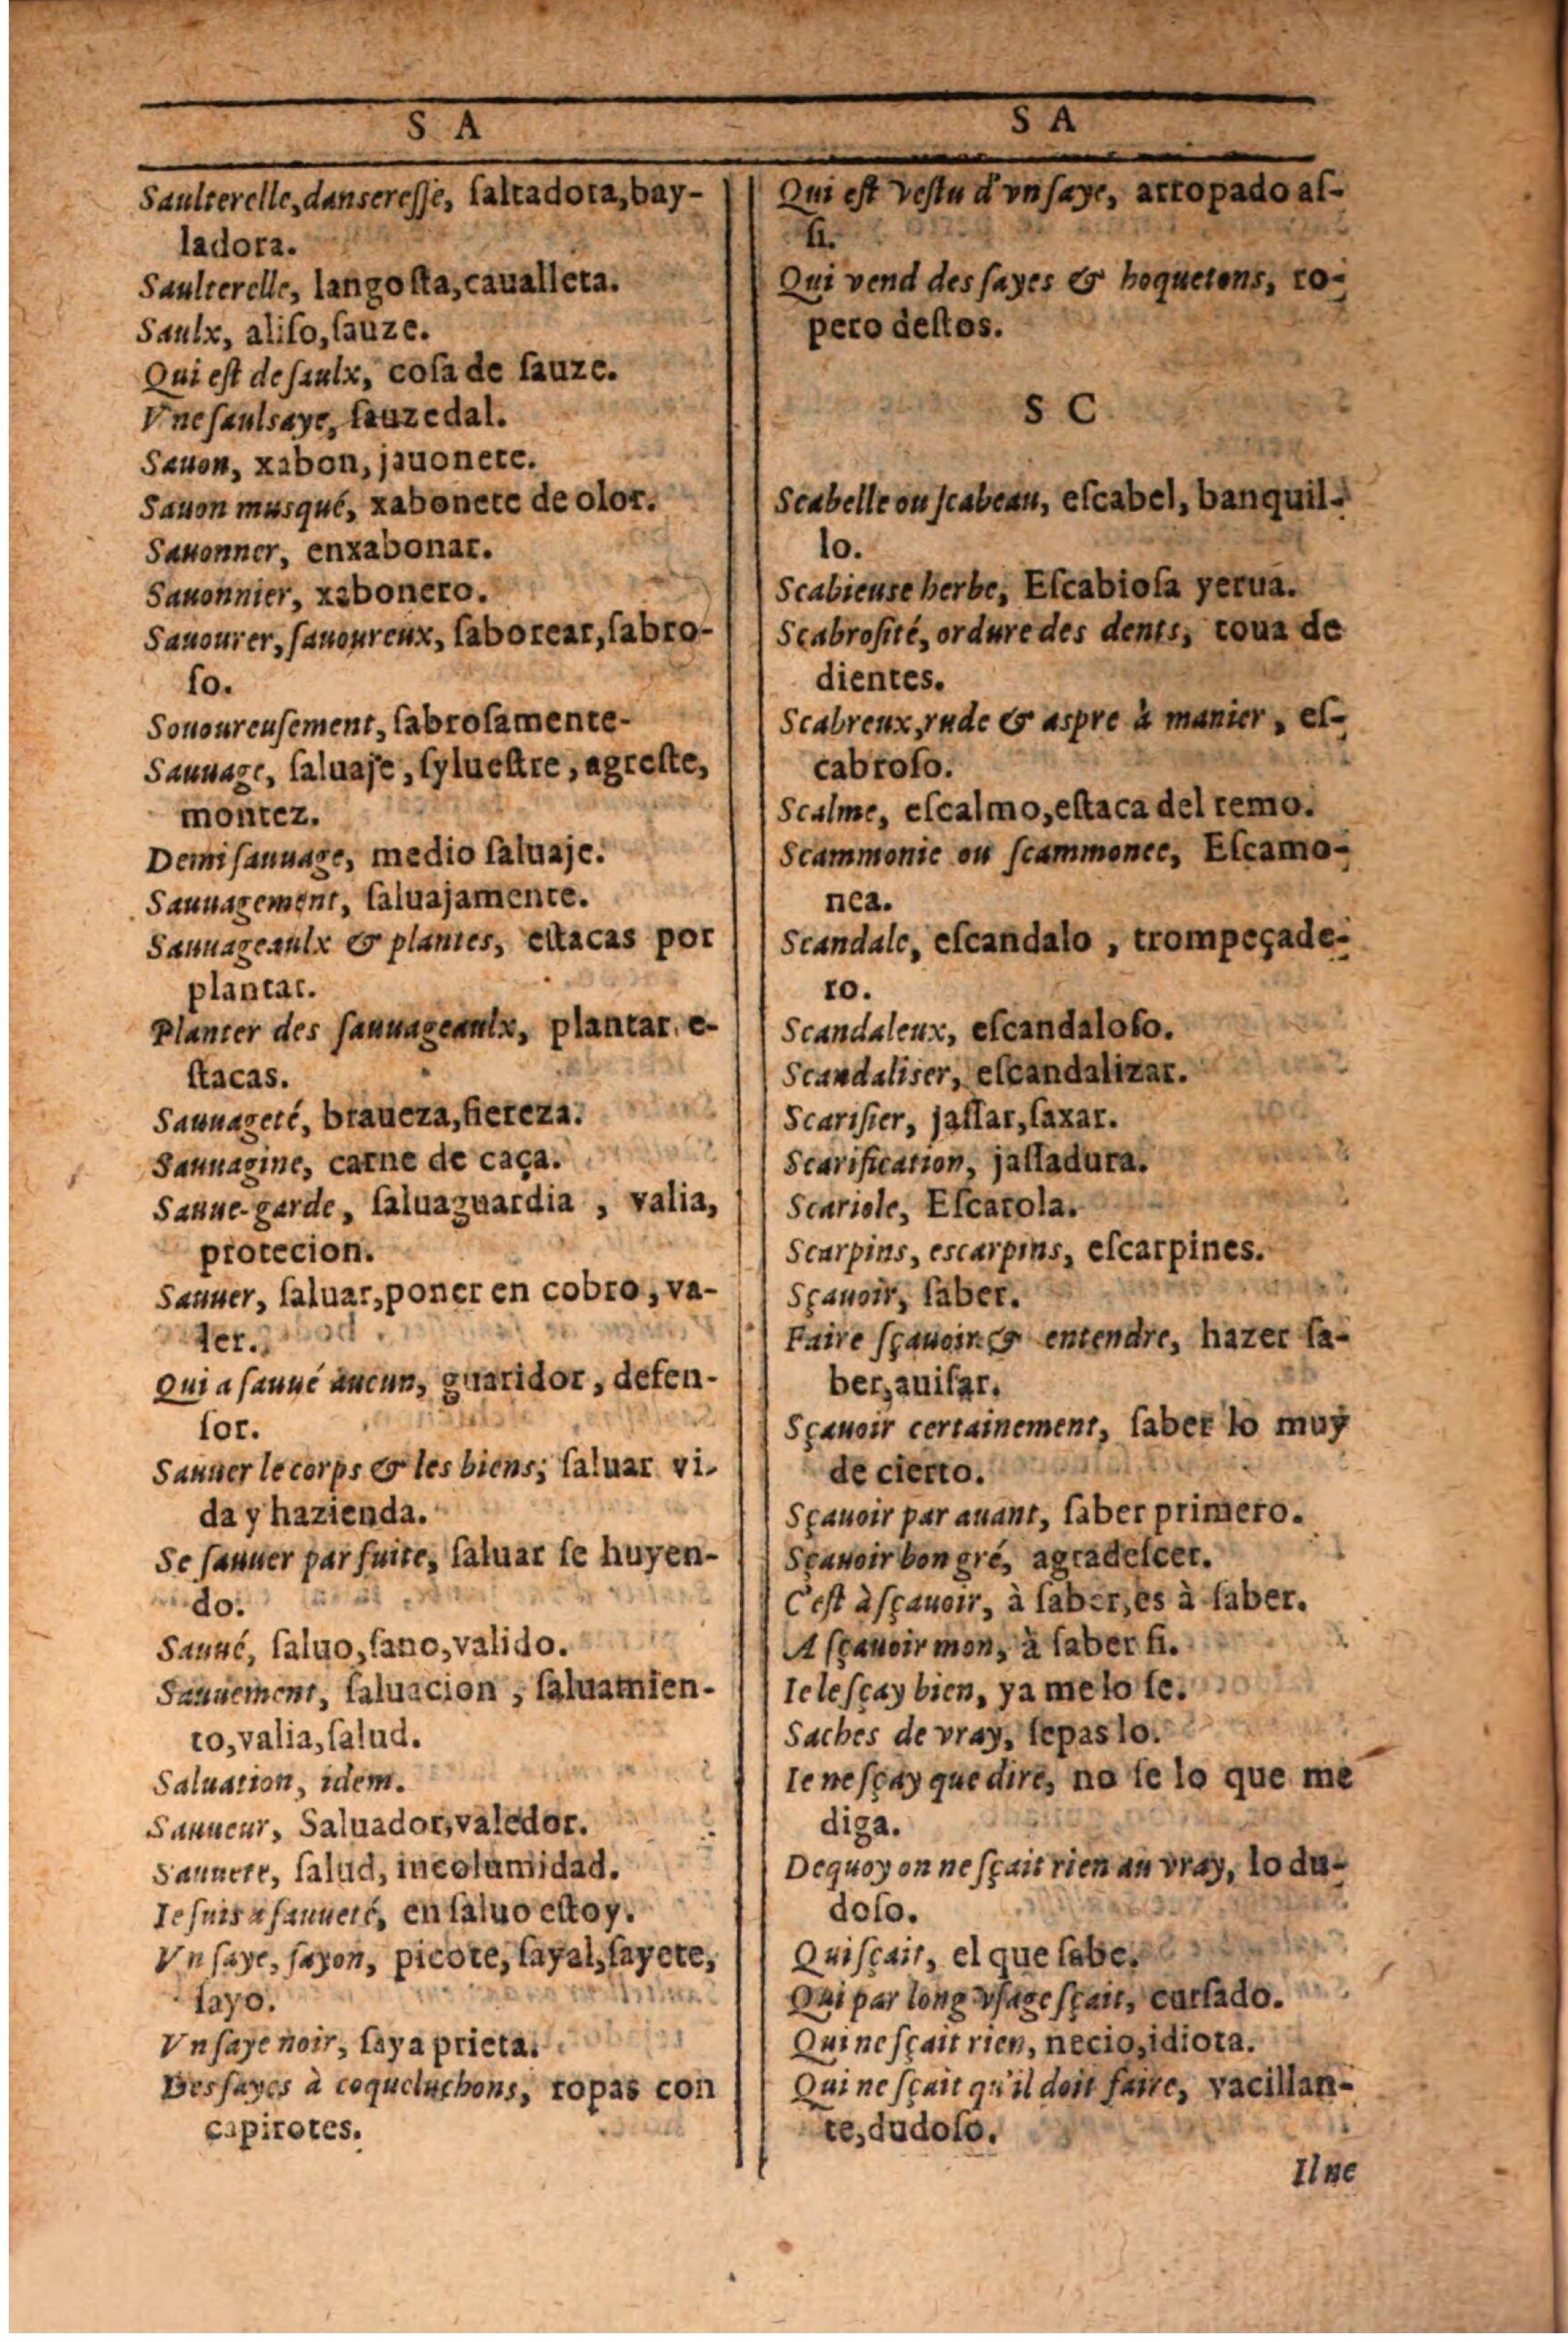 S A
Saulterelle, danseresse, ſaltadora, bay-
ladora.
Saulterelle, langoſta, caualleta.
Saulx, aliſo, ſauze.
Qui eſt de ſaulx, coſa de ſauze.
Vne ſaulsaye, ſauzedal.
Sauon, xabon, jauonete.
Sauon musqué, xabonete de olor.
Sauonner, enxabonar.
Sauonnier, xabonero.
Sauourer, ſauoureux, ſaborear, ſabro-
ſo.
Sououreuſement, ſabroſamente-
Sauuage, ſaluaje, ſylueſtre, agreſte,
montez.
Demi ſauuage, medio ſaluaje.
Sauuagement, ſaluajamente.
Sauuageaulx & plantes, eſtacas por
plantar.
Planter des ſauuageaulx, plantar e-
ſtacas.
Sauuageté, braueza, fiereza.
Sauuagine, carne de caça.
Sauue-garde, ſaluaguardia, valia,
protecion.
Sauuer, ſaluar, poner en cobro, va-
ler.
Qui a ſauué aucun, guaridor, defen-
ſor.
Sauuer le corps & les biens, ſaluar vi-
da y hazienda.
Se ſauuer par fuite, ſaluar ſe huyen-
do.
Sauué, ſaluo, ſano, valido.
Sauuement, ſaluacion, ſaluamien-
to, valia, ſalud.
Saluation, idem.
Sauueur, Saluador, valedor.
Sauuete, ſalud, incolumidad.
Ie ſuis a ſauueté, en ſaluo eſtoy.
Vn ſaye, ſayon, picote, ſayal, ſayete,
ſayo.
Vn ſaye noir, ſaya prieta.
Des ſayes à coqueluchons, ropas con
capirotes.
S A
Qui eſt veſtu d'vn ſaye, arropado aſ-
ſi.
Qui vend des ſayes & hoquetons, ro-
pero deſtos.
S C
Scabelle ou ſcabeau, eſcabel, banquil-
lo.
Scabieuse herbe, Eſcabioſa yerua.
Scabroſité, ordure des dents, toua de
dientes.
Scabreux, rude & aspre à manier, eſ-
cabroſo.
Scalme, eſcalmo, eſtaca del remo.
Scammonie ou ſcammonee, Eſcamo-
nea.
Scandale, eſcandalo, trompeçade-
ro.
Scandaleux, eſcandaloſo.
Scandaliser, eſcandalizar.
Scarifier, jaſſar, ſaxar.
Scarification, jaſſadura.
Scariole, Eſcarola.
Scarpins, escarpins, eſcarpines.
Sçauoir, ſaber.
Faire ſçauoir & entendre, hazer ſa-
ber, auiſar.
Sçauoir certainement, ſaber lo muy
de cierto.
Sçauoir par auant, ſaber primero.
Sçauoir bon gré, agradeſcer.
C'eſt à ſçauoir, à ſaber, es à ſaber.
A ſçauoir mon, à ſaber ſi.
Ie le ſçay bien, ya me lo ſe.
Saches de vray, ſepas lo.
Ie ne ſçay que dire, no ſe lo que me
diga.
Dequoy on ne ſçait rien au vray, lo du-
doſo.
Qui ſçait, el que ſabe.
Qui par long vſage ſçait, curſado.
Qui ne ſçait rien, necio, idiota.
Qui ne ſçait qu'il doit faire, vacillan-
te, dudoſo.
Il ne